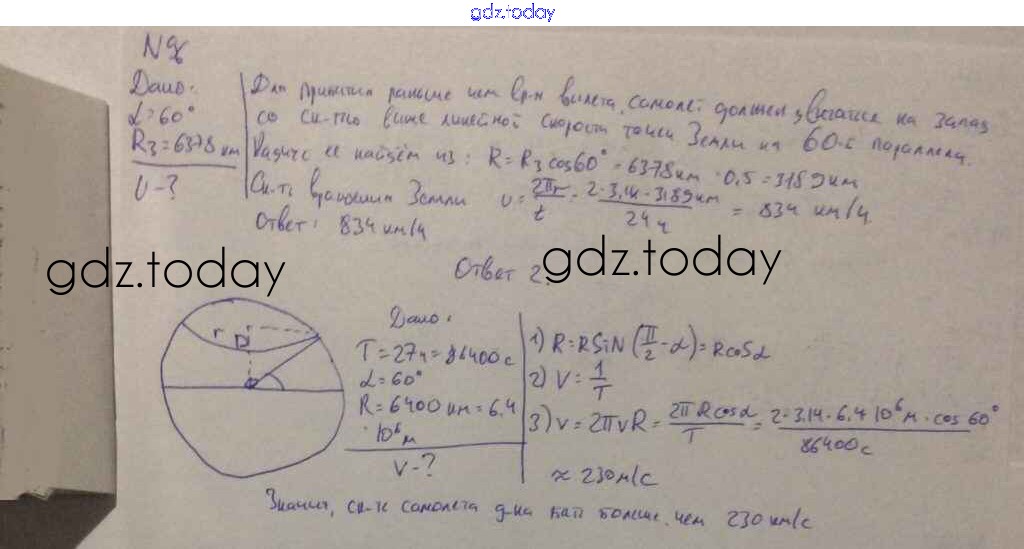 gdz.today
N96
Дано:
α=60°
Rз=6378 км
υ-?
Для прилёта раньше чем вр-я вылета, самолёт должен двигаться на запад
со ск-тью выше линейной скорости точки Земли на 60-й параллели.
Радиус её найдём из: R=Rз cos60° = 6378км · 0,5 = 3189км
Ск-ть вращения Земли υ = 2πr/t = 2·3,14·3189км/24ч = 834 км/ч
Ответ: 834 км/ч
gdz.today
Ответ 2.
gdz.today
r
Дано:
T=27ч=86400с
α=60°
R=6400 км=6,4
·10⁶м
V-?
1) R=RSiN(π/2-α)=Rcosα
2) V=1/T
3) v=2πvR=2πRcosα/T=2·3,14·6,4 10⁶м·cos60°/86400с
≈ 230м/с
Значит, ск-ть самолета д-на быть больше, чем 230 км/с